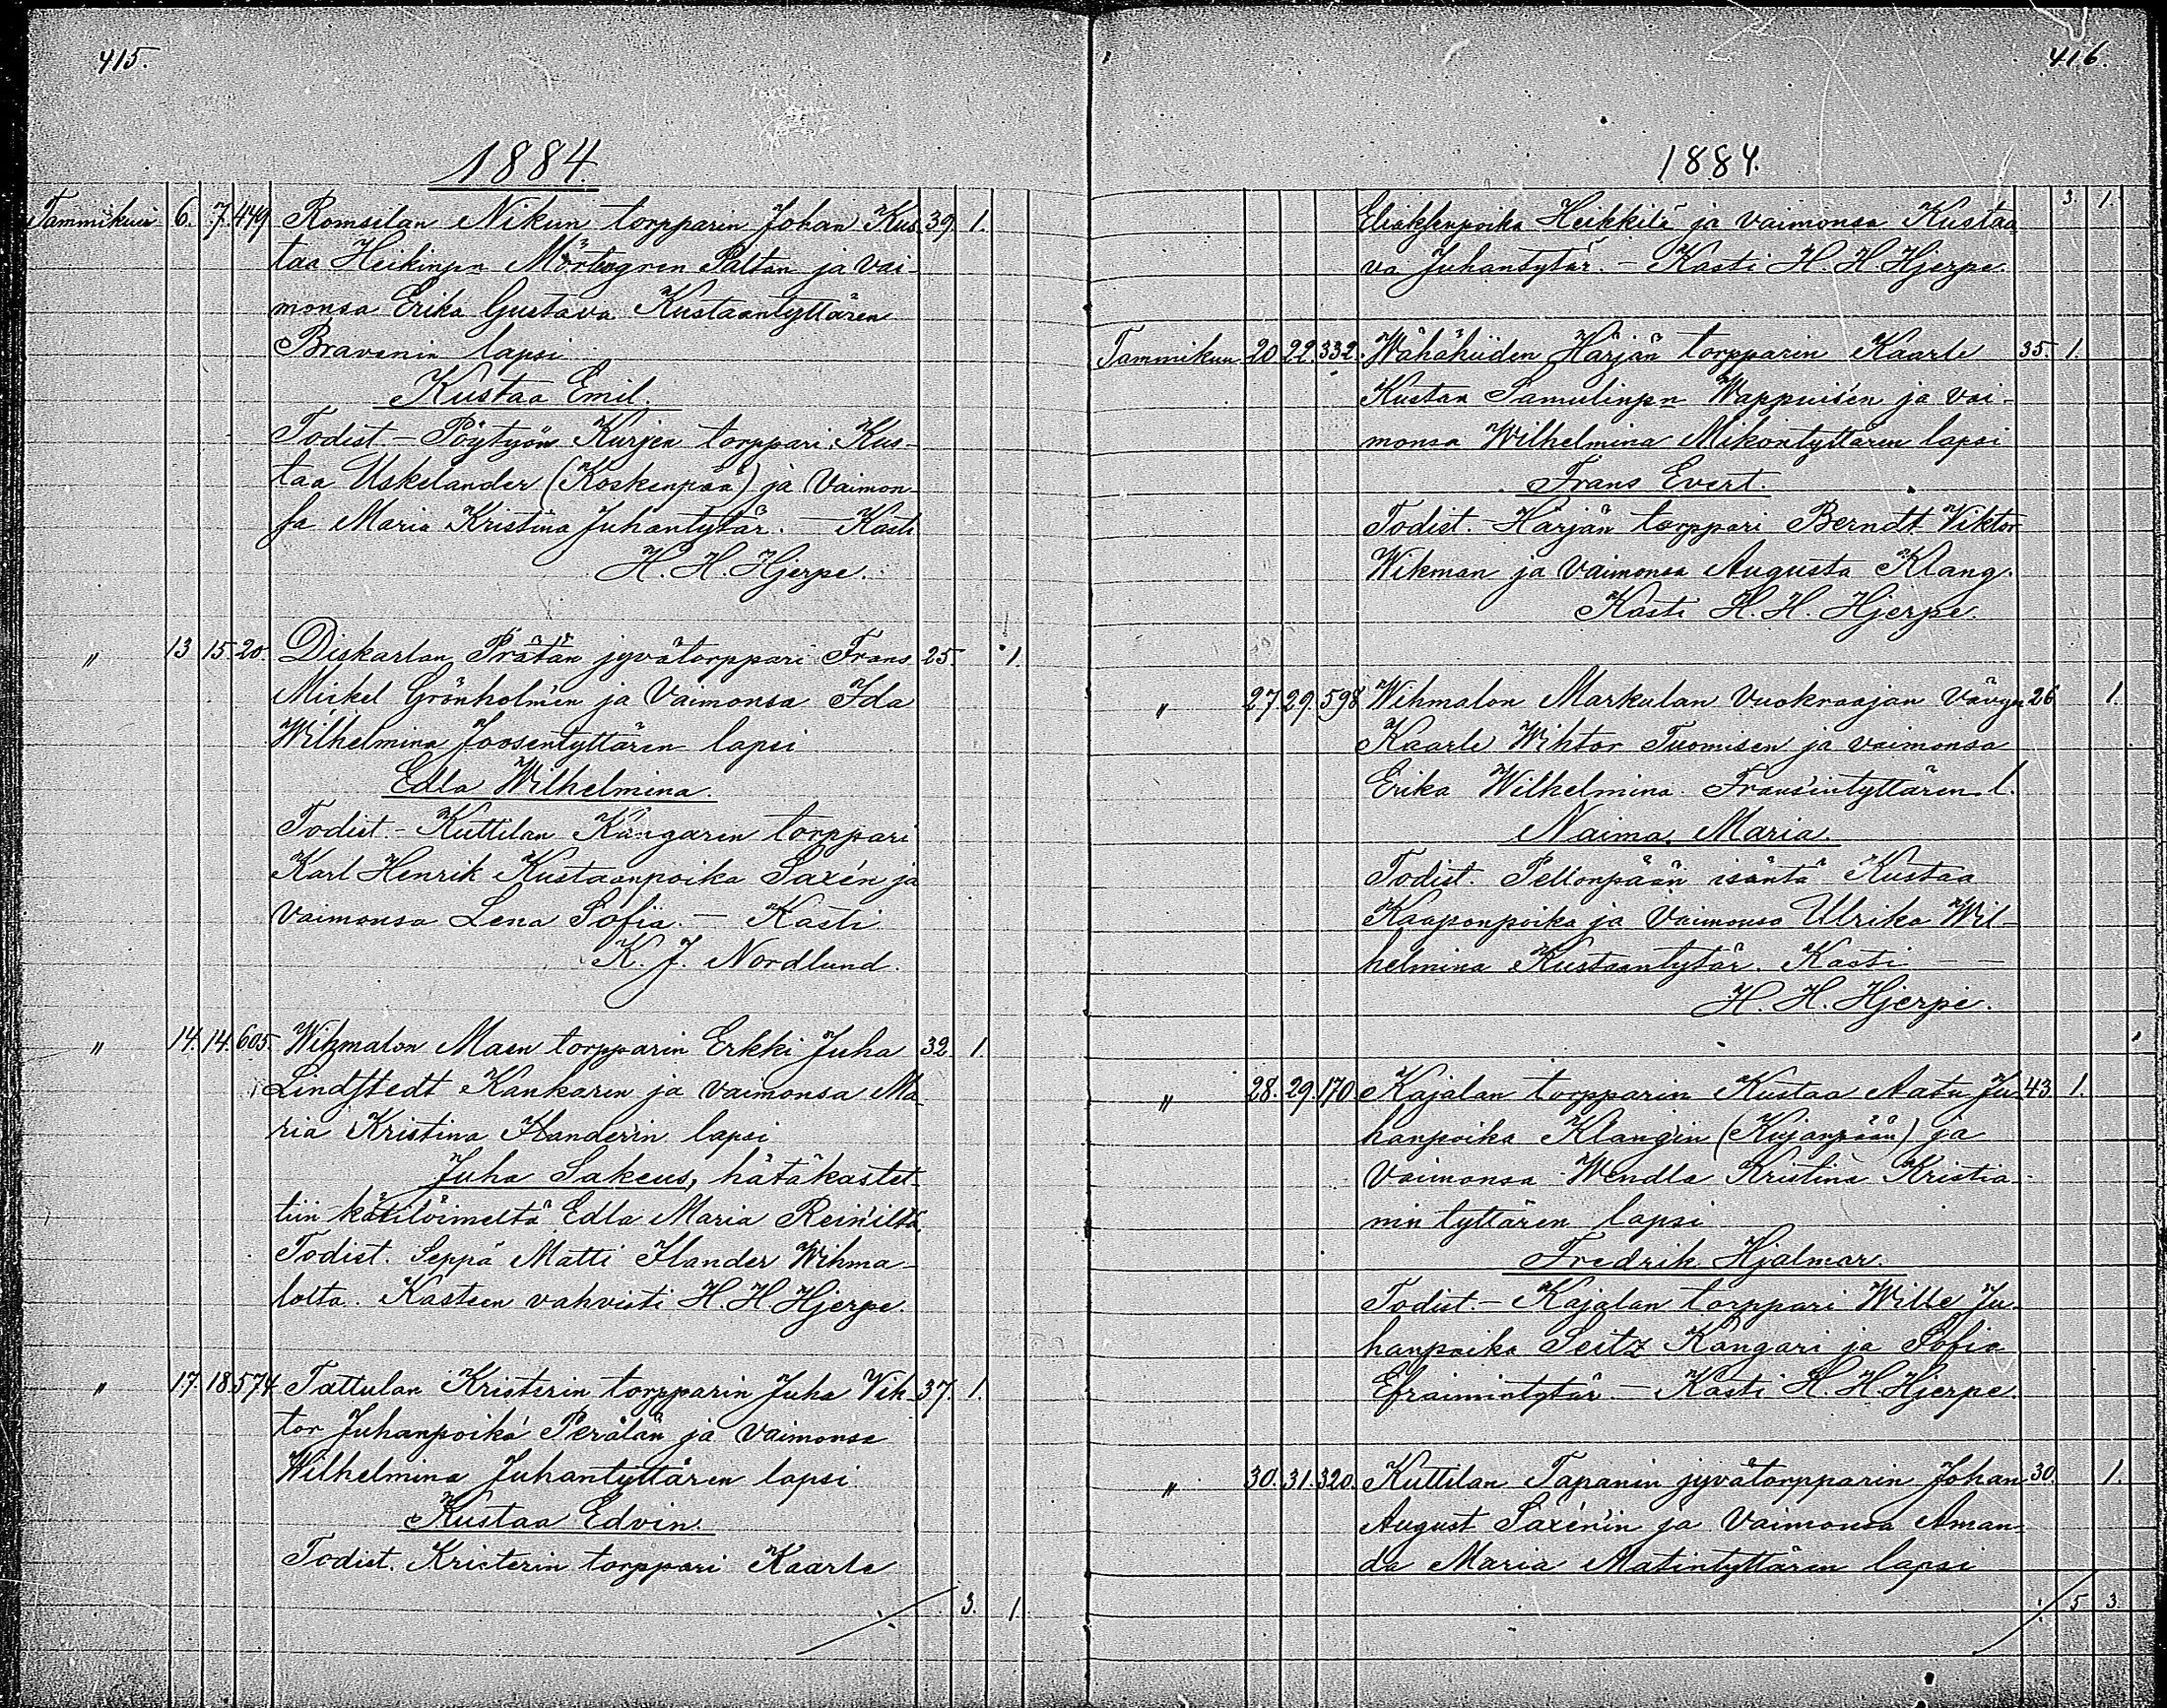 415.
1884.
Tammikuu 6. 7. 449 Romsilan Nikun torpparin Johan Kus- 39. 1.
taa Heikinpn Mörtengren Paltan ja vai-
monsa Erika Gustava Kustaantyttären
Bravenin lapsi
Kustaa Emil.
Todist. – Pöytyön Kurjen torppari Kus-
taa Uskelander (Koskenpää) ja vaimon-
sa Maria Kristina Juhantytär. – Kasti
H. H. Hjerpe.
" 13 15. 20. Diskarlan Prätän jyvätorppari Frans 25. 1
Mickel Grönholmin ja vaimonsa Ida
Wilhelmina Joosentyttären lapsi
Edla Wilhelmina.
Todist. – Kuttilan Kangarin torppari
Karl Henrik Kustaanpoika Saxén ja
vaimonsa Lena Sofia. – Kasti
K. J. Nordlund.
" 14. 14. 605. Wihmalon Maen torpparin Erkki Juha 32 1.
Lindstedt Kankaren ja vaimonsa Ma-
ria Kristina Ilander'in lapsi
Juha Sakeus, hätäkastet-
tiin kätilöimeltä Edla Maria Rein'iltä.
Todist. Seppä Matti Ilander Wihma-
lolta. Kasteen vahvisti H. H. Hjerpe
" 17. 18. 574. Tattulan Kristerin torpparin Juha Vih- 37. 1.
tor Juhanpoika Perälän ja vaimonsa
Wilhelmina Juhantyttären lapsi
Kustaa Edvin.
Todist. Kristerin torppari Kaarle
./. 3. 1.
416.
1884.
3. 1.
Eliaksenpoika Heikkilä ja vaimonsa Kustaa
va Juhantytär. – Kasti H. H. Hjerpe.
Tammikuu 20 22. 332. Wähähiiden Härjän torpparin Kaarle 35. 1.
Kustaa Samulinpn Wappuisen ja vai-
monsa Wilhelmina Mikontyttären lapsi
Frans Evert.
Todist. – Härjän torppari Berndt Viktor
Wikman ja vaimonsa Augusta Klang.
Kasti H. H. Hjerpe.
" 27. 29. 598 Wihmalon Markulan vuokraajan vävyn 26 1.
Kaarle Wihtor Tuomisen ja vaimonsa
Erika Wilhelmina Frans'intyttären l.
Naima Maria.
Todist. Pellonpään isäntä Kustaa
Kaaponpoika ja vaimonsa Ulrika Wil-
helmina Kustaantytär. Kasti – –
H. H. Hjerpe.
" 28. 29. 170. Kajalan torpparin Kustaa Aatu Ju- 43. 1.
hanpoika Klang'in (Kujanpään) ja
vaimonsa Wendla Kristina Kristia-
nin tyttären lapsi
Fredrik Hjalmar.
Todist. – Kajalan torppari Wille Ju-
hanpoika Seitz Kangari ja Sofia
Efraimintytär. – Kasti H. H. Hjerpe.
" 30. 31. 320. Kuttilan Tapanin jyvätorpparin Johan 30. 1.
August Saxén'in ja vaimonsa Aman-
da Maria Matintyttären lapsi
./. 5 3